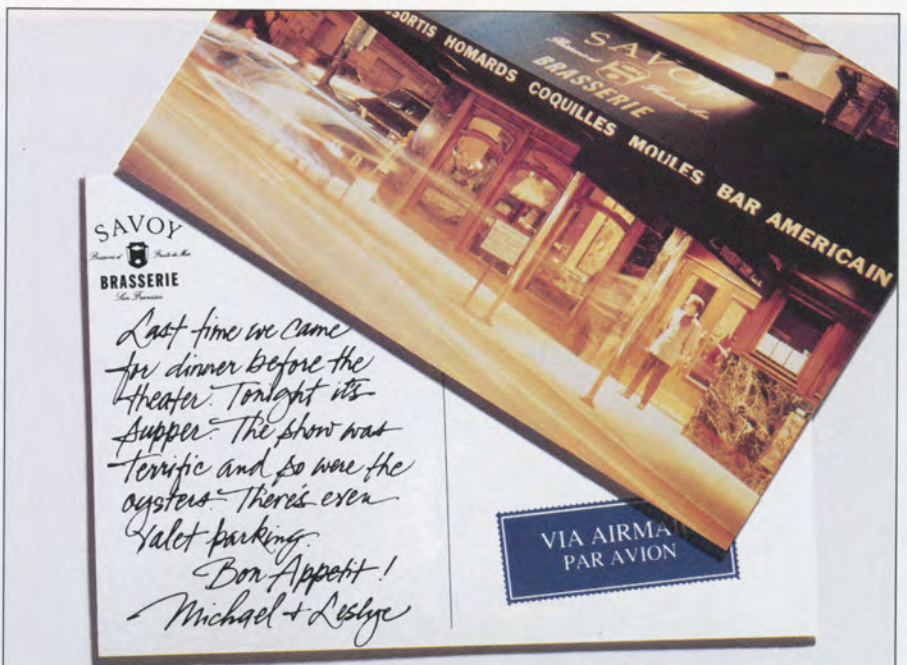 SORTIS HOMARDS COQUILLES MOULES BAR AMERICAIN
SAVOY
BRASSERIE
SAVOY
Brasserie et Fruits de Mer
BRASSERIE
San Francisco
Last time we came
for dinner before the
theater. Tonight it's
supper. The show was
terrific and so were the
oysters. There's even
valet parking.
Bon Appetit!
Michael + Leslye
VIA AIRMA
PAR AVION